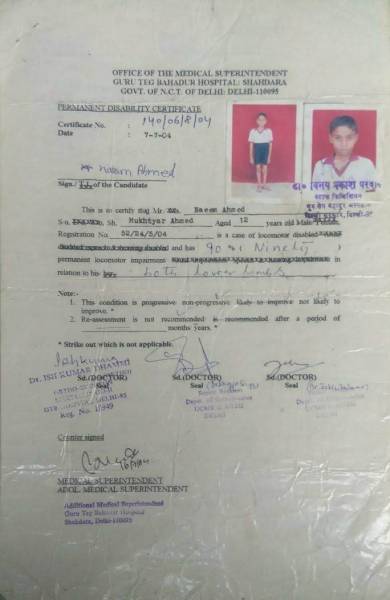 OFFICE OF THE MEDICAL SUPERINTENDENT
GURU TEG BAHADUR HOSPITAL: SHAHDARA
GOVT. OF N.C.T. OF DELHI: DELHI-110095
PERMANENT DISABILITY CERTIFICATE
Certificate No. : 140/06/8/04
Date : 7-7-04
Naeem Ahmed
Sign./ of the Candidate
This is to certify that Mr. Naeem Ahmed
S/o. Sh. Mukhtyar Ahmed Aged 12 years old Male
Registration No. 52/24/5/04 is a case of locomotor disabled
and has 90% (Ninety
permanent locomotor impairment
in relation to his both lower limbs
Note:-
1. This condition is progressive non-progressive likely to improve not likely to
improve. *
2. Re-assessment is not recommended is recommended after a period of
months years. *
* Strike out which is not applicable.
Dr. ISH KUMAR DHAMMI
Reg. No.
Sd.(DOCTOR) Sd.(DOCTOR) Sd.(DOCTOR)
Seal Seal Seal
Counter signed
MEDICAL SUPERINTENDENT
ADDL. MEDICAL SUPERINTENDENT
Additional Medical Superintendent
Guru Teg Bahadur Hospital
Shahdara, Delhi-110095